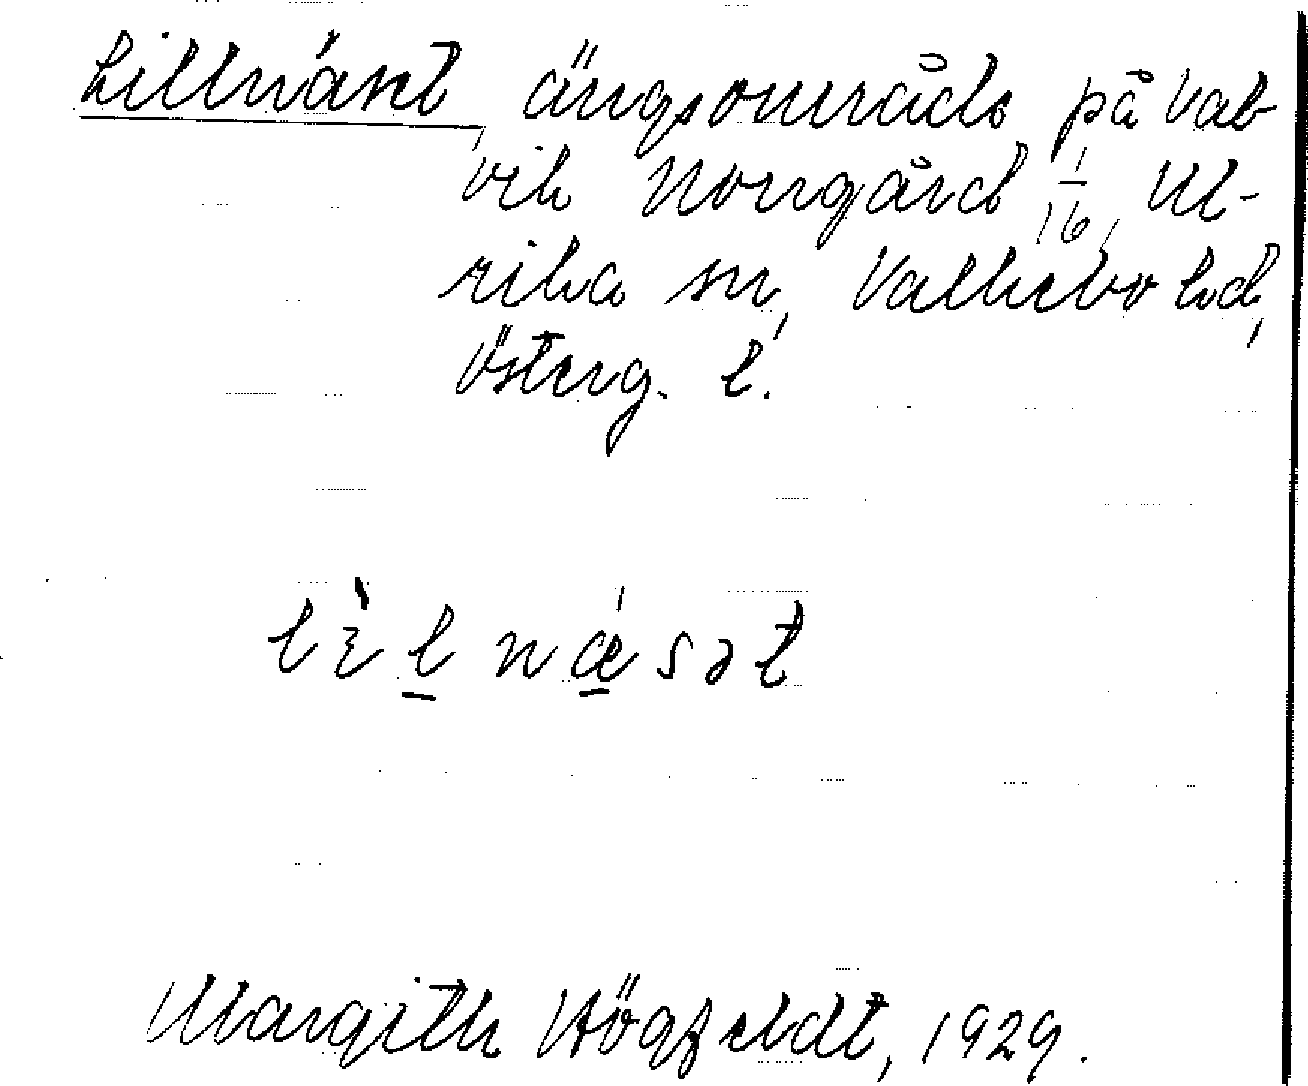 Lillnäset, ängsområde på Val-
vik Norrgård 1/16, Ul-
rika sn, Valkebo hd,
Österg. l.
lìlnǽsət
Margith Högfeldt, 1929.